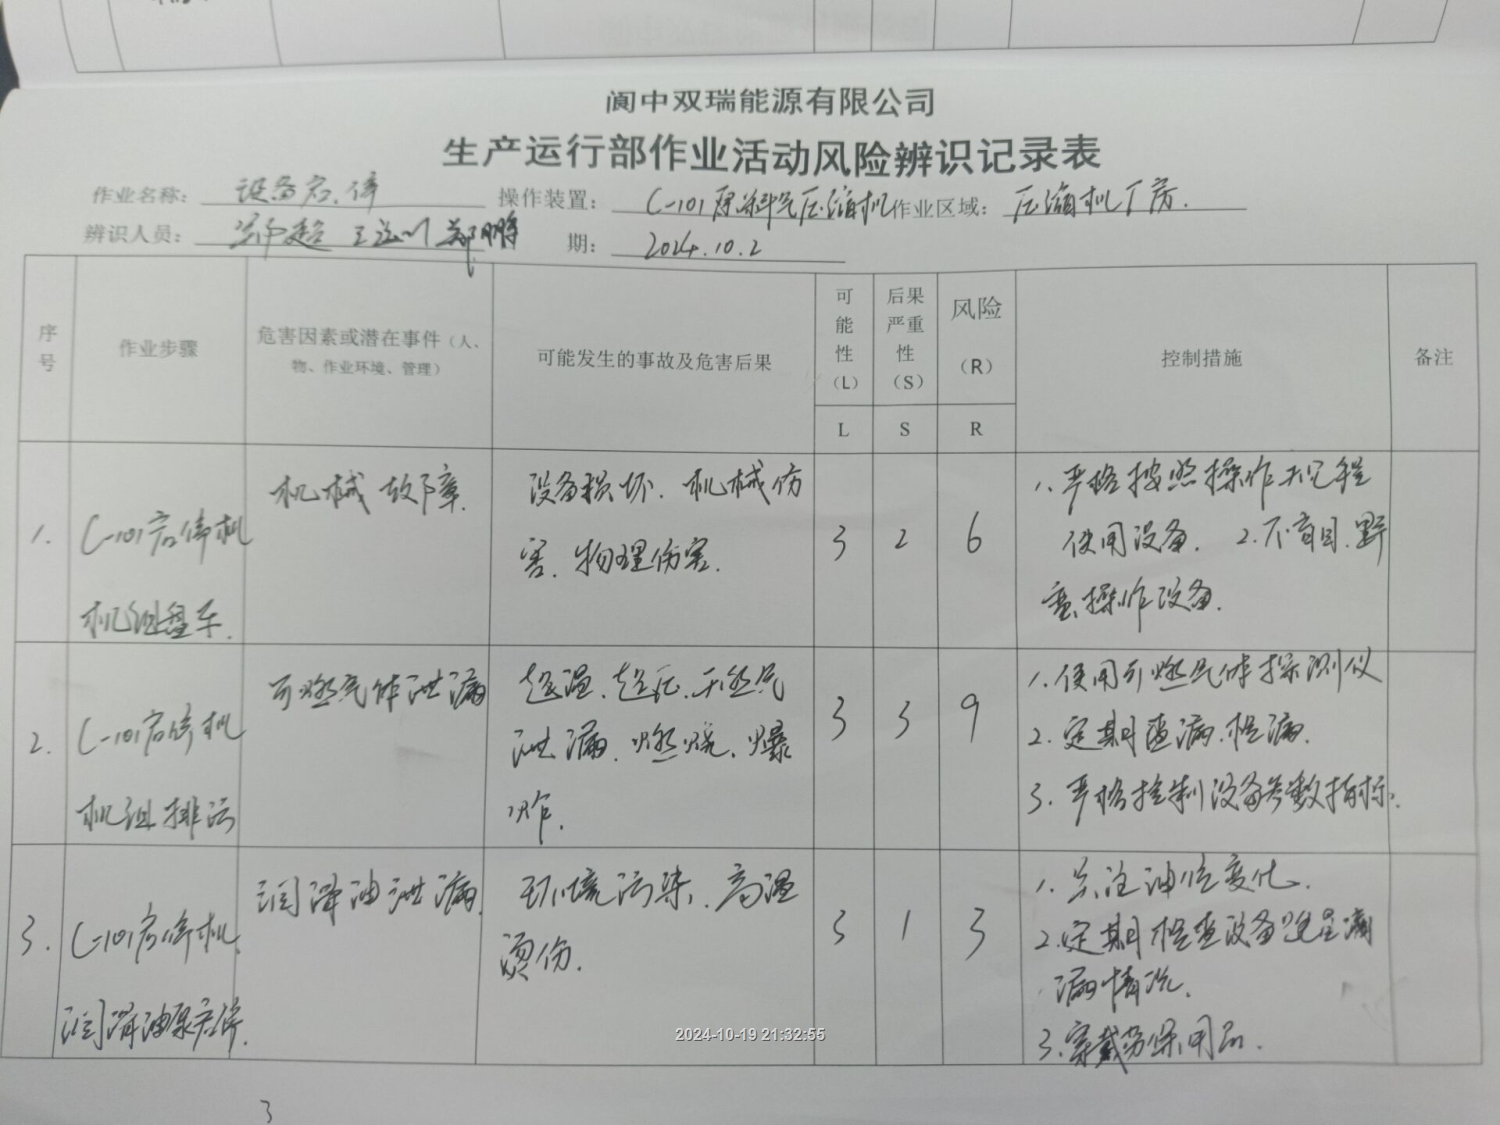 阆中双瑞能源有限公司
生产运行部作业活动风险辨识记录表
作业名称： 设备启、停 操作装置： C-101原料气压缩机 作业区域： 压缩机厂房.
辨识人员： 超 王 郑鹏 期： 2024.10.2
序号 作业步骤 危害因素或潜在事件（人、物、作业环境、管理） 可能发生的事故及危害后果 可能性（L） 后果严重性（S） 风险（R） 控制措施 备注
L S R
1. C-101启停机 机械故障. 设备损坏、机械伤 3 2 6 1、严格按照操作规程
机组盘车. 害、物理伤害. 使用设备. 2.不盲目、野
蛮操作设备.
2. C-101启停机 可燃气体泄漏 超温、超压、天然气 3 3 9 1.使用可燃气体探测仪
机组排污 泄漏、燃烧、爆 2.定期查漏、检漏.
炸. 3.严格控制设备参数指标.
3. C-101启停机、 润滑油泄漏. 环境污染、高温 3 1 3 1.关注油位变化.
润滑油泵启停. 烫伤. 2.定期检查设备跑冒滴
漏情况.
3.穿戴劳保用品.
2024-10-19 21:32:55
3